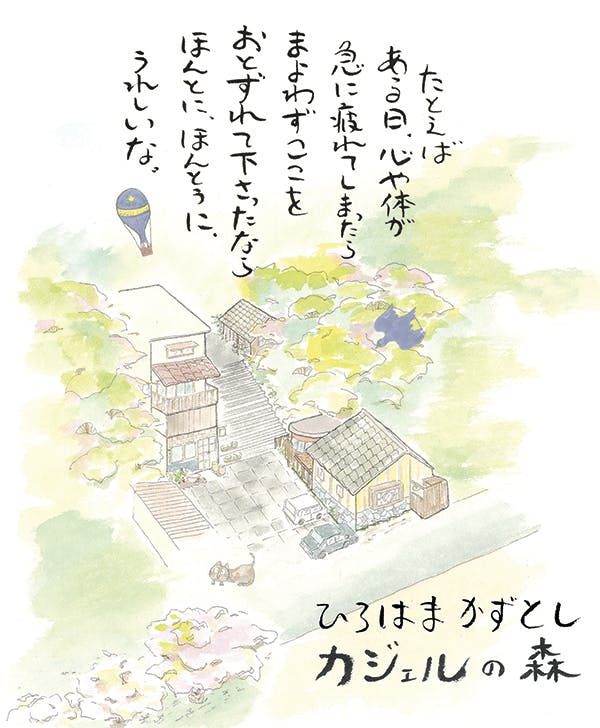 たとえば
ある日、心や体が
急に疲れてしまったら
まよわずここを
おとずれて下さったなら
ほんとに、ほんとうに、
うれしいな。
ひろはまかずとし
カジェルの森